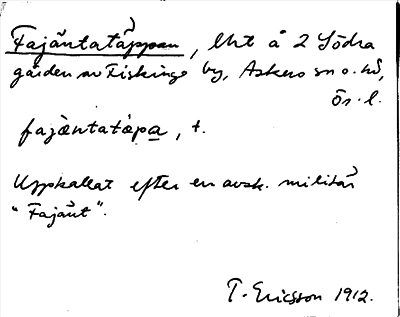 Fajäntatäppan, lht å 2 Södra
gården av Fiskinge by, Askers sn o. hd,
Ör. l.
fajäntatäpa, f.
Uppkallat efter en avsk. militär
"Fajänt".
T. Ericsson 1912.